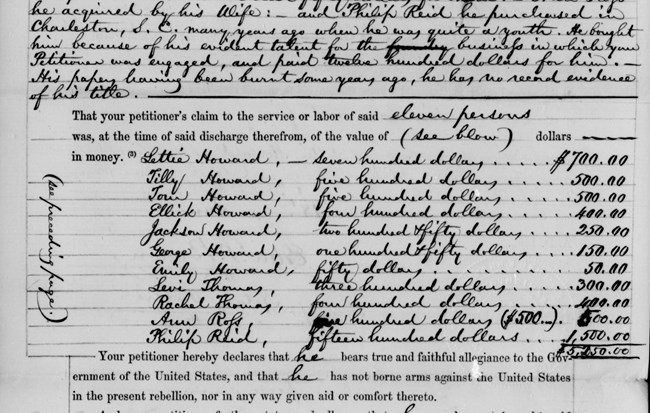 he acquired by his Wife: — and Philip Reid he purchased in
Charleston, S. C. many years ago when he was quite a youth. He bought
him because of his evident talent for the business in which your
Petitioner was engaged, and paid twelve hundred dollars for him. —
His papers having been burnt some years ago, he has no record evidence
of his title. —
That your petitioner's claim to the service or labor of said eleven persons
was, at the time of said discharge therefrom, of the value of (see blow) dollars
in money. (3) Lettie Howard, — seven hundred dollars ..... $700.00
Tilly Howard, five hundred dollars ..... 500.00
Tom Howard, five hundred dollars ..... 500.00
Ellick Howard, four hundred dollars ..... 400.00
Jackson Howard, two hundred & fifty dollars .... 250.00
George Howard, one hundred & fifty dollars .... 150.00
Emily Howard, fifty dollars ....... 50.00
Levi Thomas, three hundred dollars .... 300.00
Rachel Thomas, four hundred dollars .... 400.00
Ann Ross, five hundred dollars ($500..) . 500.00
Philip Reid, fifteen hundred dollars ... 1,500.00
$5,250.00
(see preceding page.)
Your petitioner hereby declares that he bears true and faithful allegiance to the Gov-
ernment of the United States, and that he has not borne arms against the United States
in the present rebellion, nor in any way given aid or comfort thereto.